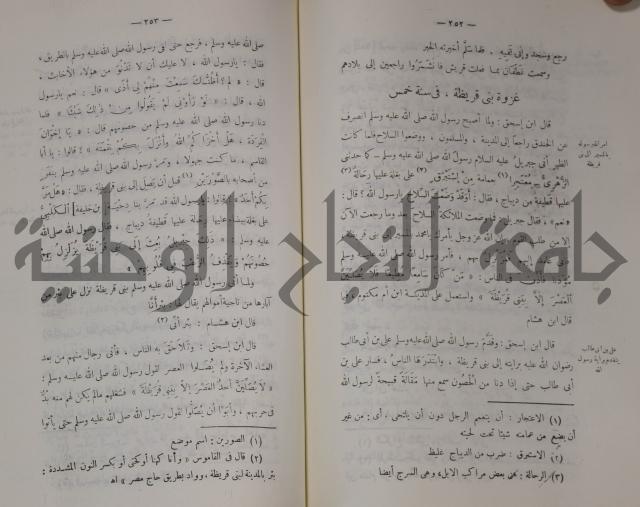 — ٢٥٢ —
رجع وسجد وإلى قميه ، فلما سلم أخبرته الخبر
وسمعت غطفان بما فعلت قريش فانشمروا راجعين إلى بلادهم
غزوة بنى قريظة ، فى سنة خمس
قال ابن إسحق : ولما أصبح رسول الله صلى الله عليه وسلم انصرف
عن الخندق راجعاً إلى المدينة ، والمسلمون ، ووضعوا السلاح فلما كانت
الظهر أتى جبريل عليه السلام رسول الله صلى الله عليه وسلم – كما حدثنى
الزهرى – معتجراً (١) بعمامة من إستبرق (٢) على بغلة عليها رحالة (٣)
عليها قطيفة من ديباج ، فقال : أوقد وضعت السلاح يا رسول الله ؟ قال :
« نعم » ، فقال جبريل : فما وضعت الملائكة السلاح بعد وما رجعت الآن
إلا من طلب القوم إن الله عز وجل يأمرك يا محمد بالمسير إلى بنى قريظة
فأمر رسول الله صلى الله عليه وسلم
مؤذنا فأذن فى الناس : « من كان سامعاً مطيعاً فلا يصلين
العصر إلا ببنى قريظة » واستعمل على المدينة ابن أم مكتوم
قال ابن هشام
قال ابن إسحق : وقدم رسول الله صلى الله عليه وسلم على بن أبى طالب
رضوان الله عليه برايته إلى بنى قريظة ، وابتدرها الناس ، فسار على بن
أبى طالب حتى إذا دنا من الحصون سمع منها مقالة قبيحة لرسول الله
امر الله رسوله
بالمسير إلى بنى
قريظة
على بن أبى طالب
يتقدم براية رسول
الله
(١) الاعتجار : أن يتعمم الرجل دون أن يتلحى ، أى : من غير
أن يضع من عمامته شيئا تحت لحيته
(٢) الاستبرق : ضرب من الديباج غليظ
(٣) الرحالة : هى بعض مراكب الابل، وهى السرج أيضا
— ٢٥٣ —
صلى الله عليه وسلم ، فرجع حتى لقى رسول الله صلى الله عليه وسلم بالطريق ،
فقال : يا رسول الله ، لا عليك أن لا تدنو من هؤلاء الأخابث ،
قال : « لم ؟ أظنك سمعت منهم لى أذى » قال : نعم يا رسول
الله ، قال : « لو رأونى لم يقولوا من ذلك شيئا » فلما
دنا رسول الله صلى الله عليه وسلم من حصونهم قال : « يا إخوان
القردة ، هل أخزاكم الله وأنزل بكم نقمته » ؟ قالوا : يا أبا
القاسم ، ما كنت جهولا ، ومر رسول الله صلى الله عليه وسلم بنفر
من أصحابه بالصورين (١) قبل أن يصل إلى بنى قريظة ، فقال : « هل مر
بكم أحد » ؟ قالوا : يا رسول الله قد مر بنا دحية بن خليفة الكلبى
على بغلة بيضاء عليها رحالة عليها قطيفة ديباج ، فقال رسول الله صلى الله
عليه وسلم « ذلك جبريل بعث إلى بنى قريظة يزلزل بهم
حصونهم ويقذف الرعب فى قلوبهم »
ولما أتى رسول الله صلى الله عليه وسلم بنى قريظة نزل على بئر من
آبارها من ناحية أموالهم يقال لها : بئر أنا
قال ابن هشام : بئر أنى (٢)
قال ابن إسحق : وتلاحق به الناس ، فأتى رجال منهم من بعد
العشاء الآخرة ولم يصلوا العصر لقول رسول الله صلى الله عليه وسلم :
« لا يصلين أحد العصر إلا ببنى قريظة » فشغلهم ما لم يكن لهم منه بد
فى حربهم ، وأبوا أن يصلوا لقول رسول الله صلى الله عليه وسلم حتى يأتوا
(١) الصورين : اسم موضع
(٢) قال فى القاموس « وأنا كهنا أو كحتى أو بكسر النون المشددة :
بئر بالمدينة لبنى قريظة ، وواد بطريق حاج مصر » اهـ
جامعة النجاح الوطنية